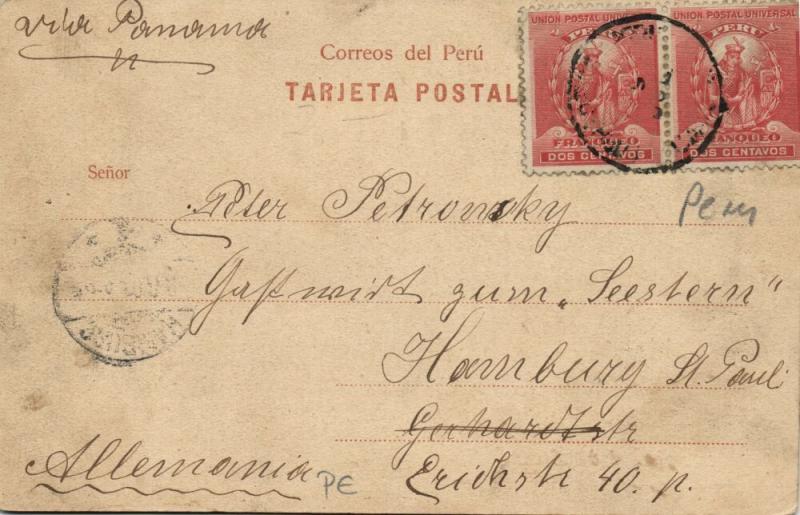 via Panama
Correos del Perú
TARJETA POSTAL
UNION POSTAL UNIVERSAL
PERU
FRANQUEO
DOS CENTAVOS
UNION POSTAL UNIVERSAL
PERU
FRANQUEO
DOS CENTAVOS
Señor
Peter Petrowsky
Peru
Gastwirt zum „Seestern"
HAMBURG
Hamburg St. Pauli
Gerhardtstr
Allemania PE
Erichstr 40. p.